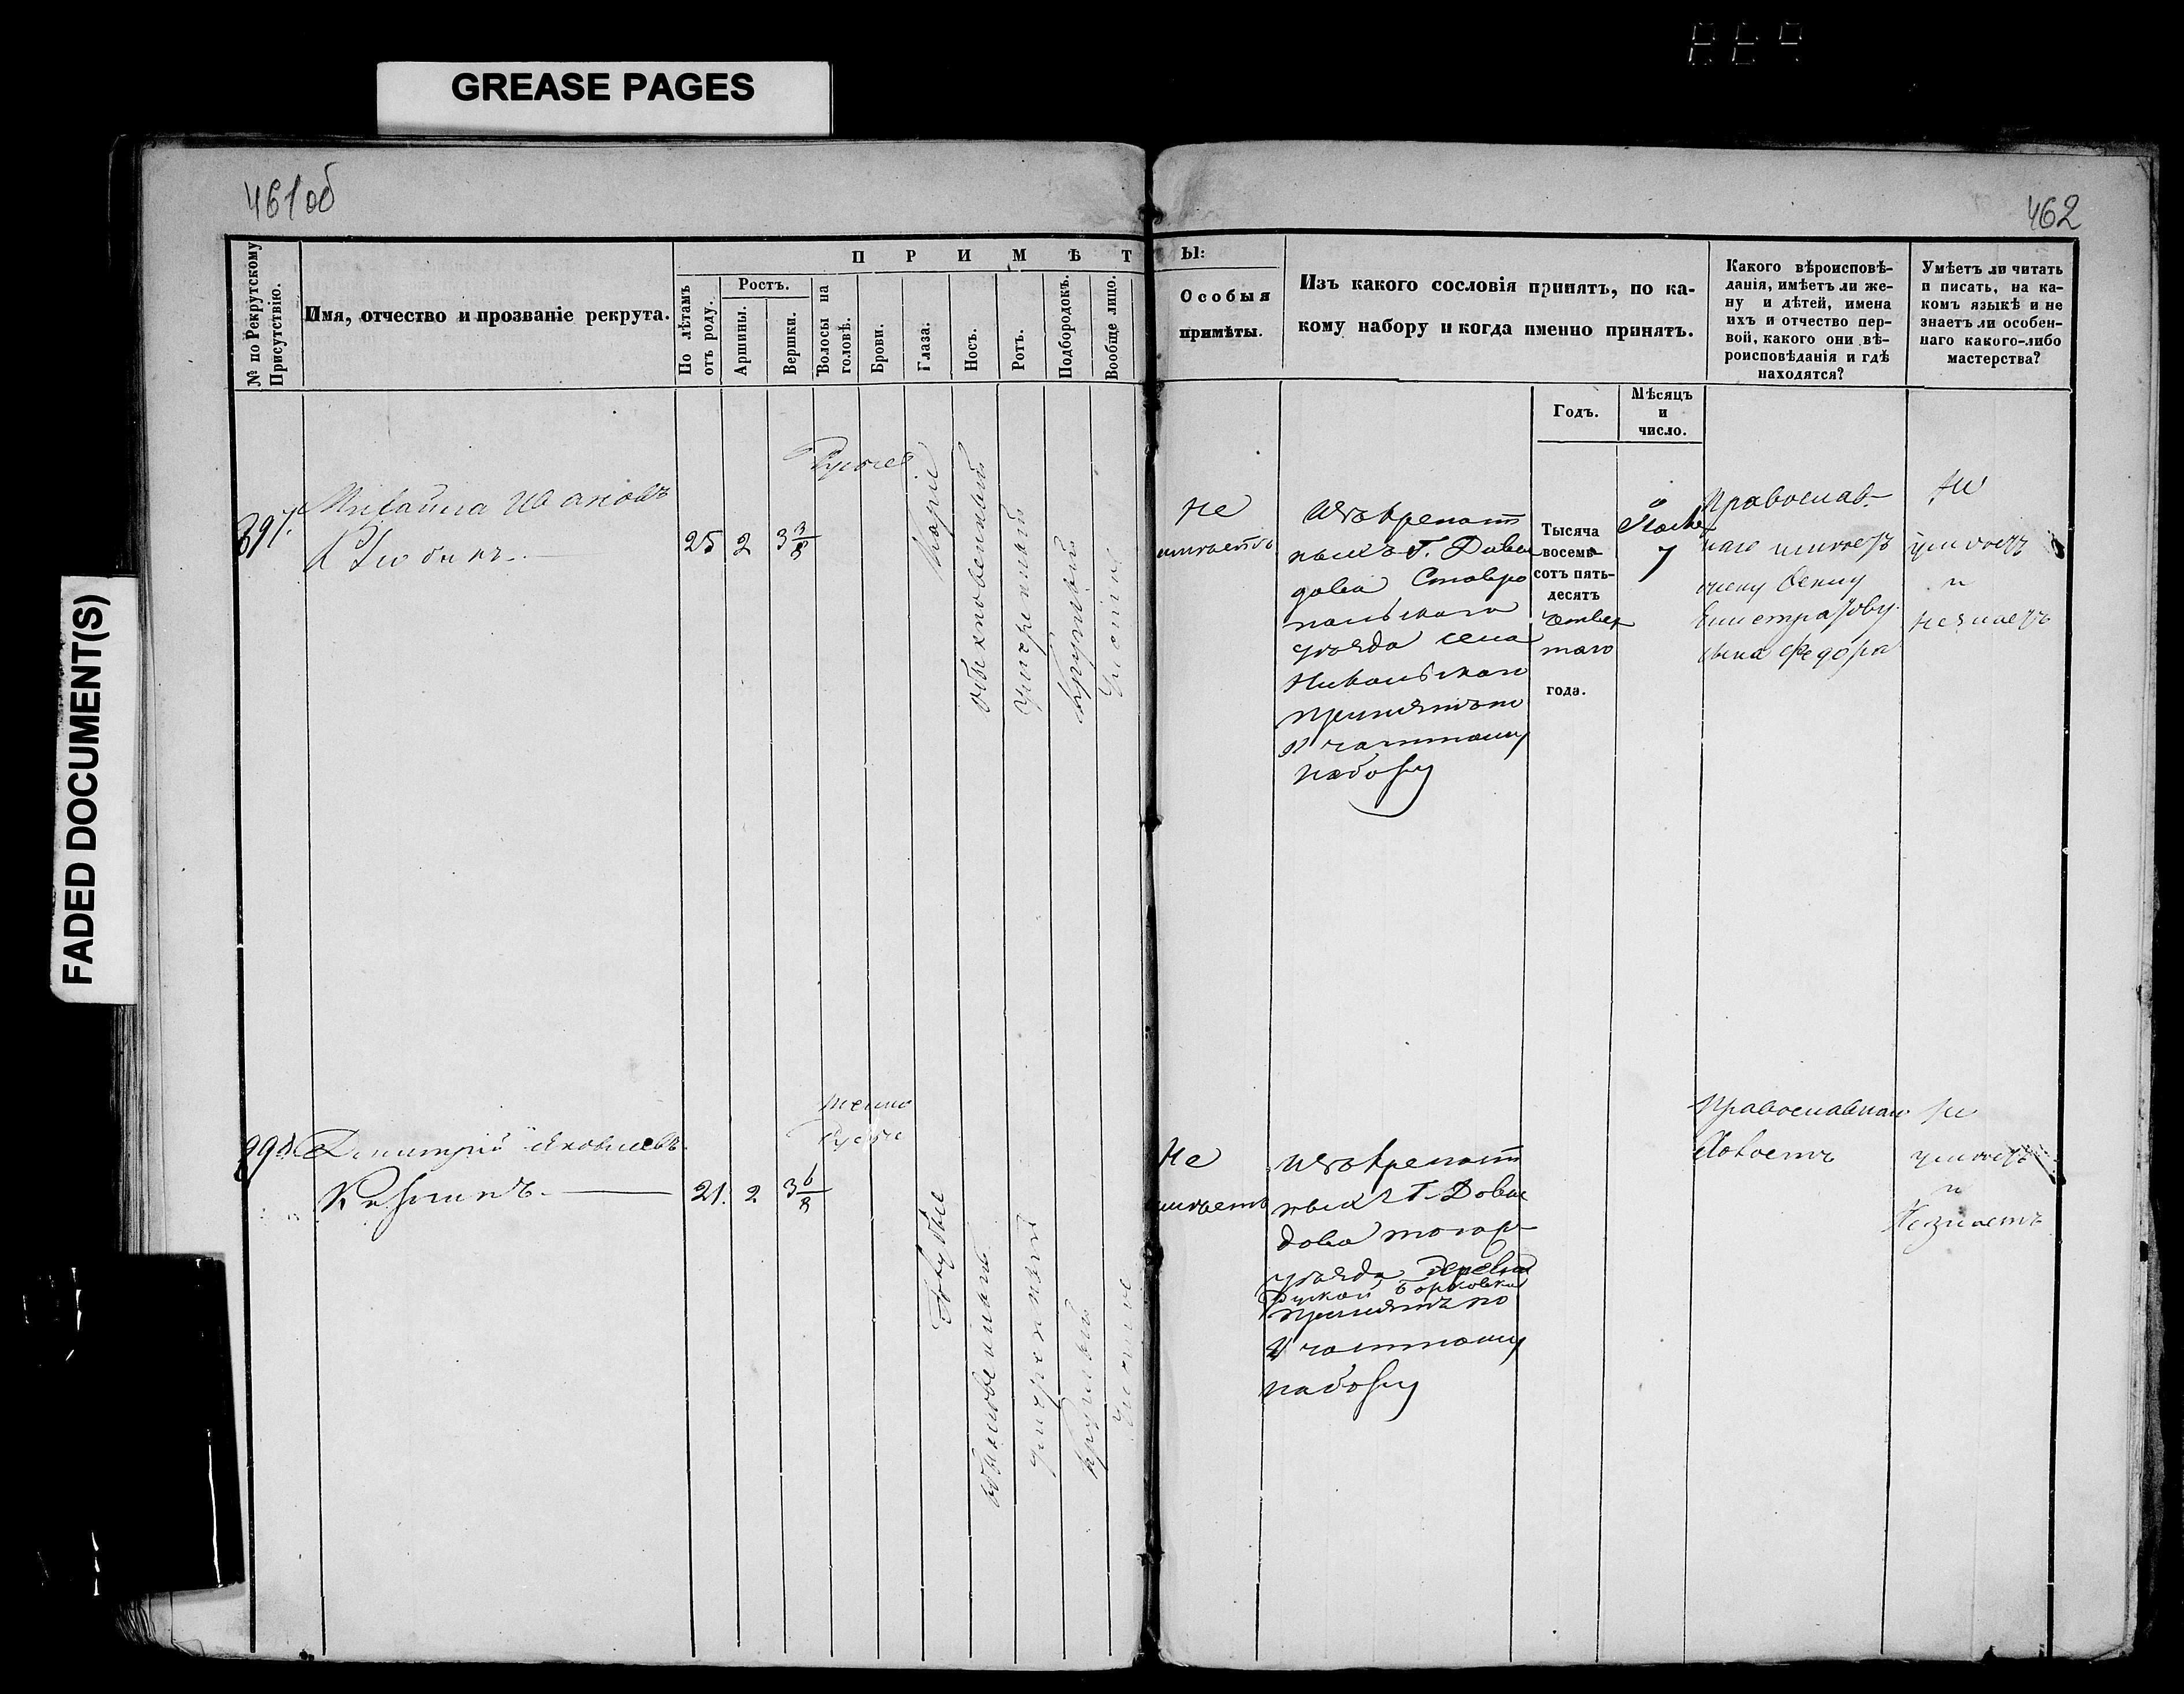 GREASE PAGES
FADED DOCUMENT(S)
461об
462
№ по Рекрутскому
Присутствію.
Имя, отчество и прозваніе рекрута.
П Р И М Ѣ Т
Ы:
По лѣтамъ
отъ роду.
Ростъ.
Аршины.
Вершки.
Волосы на
головѣ.
Брови.
Глаза.
Носъ.
Ротъ.
Подбородокъ.
Вообще лицо.
Особыя
примѣты.
Изъ какого сословія принятъ, по ка-
кому набору и когда именно принятъ.
Годъ.
Мѣсяцъ
и
число.
Какого вѣроисповѣ-
данія, имѣетъ ли же-
ну и дѣтей, имена
ихъ и отчество пер-
вой, какого они вѣ-
роисповѣданія и гдѣ
находятся?
Умѣетъ ли читать
и писать, на ка-
комъ языкѣ и не
знаетъ ли особен-
наго какого-либо
мастерства?
897.
Михайла Ивановъ
25
2
3 3/8
Русые
Каріе
обыкновенный
умеренный
круглый
Чистое
Не
имѣетъ
Изъ крепост
ныхъ Г. Давы
дова Ставро
польскаго
уѣзда села
Никольскаго
принятъ по
частному
набору
Тысяча
восемь-
сотъ пять-
десятъ
четвер
таго
года.
7
Православ-
наго имѣетъ
жену
сына Федора
Не
умѣетъ
и
незнаетъ
898.
Димитрій Яковлевъ
21.
2
3 6/8
темно
Русые
Голубые
обыкновенный
умеренный
круглый
Чистое
Не
имѣетъ
Изъ крепост
ныхъ Г. Давы
дова тогоже
уѣзда деревни
Руской Борковки
принятъ по
частному
набору
Православнаго
Холостъ
Не
умѣетъ
и
Незнаетъ